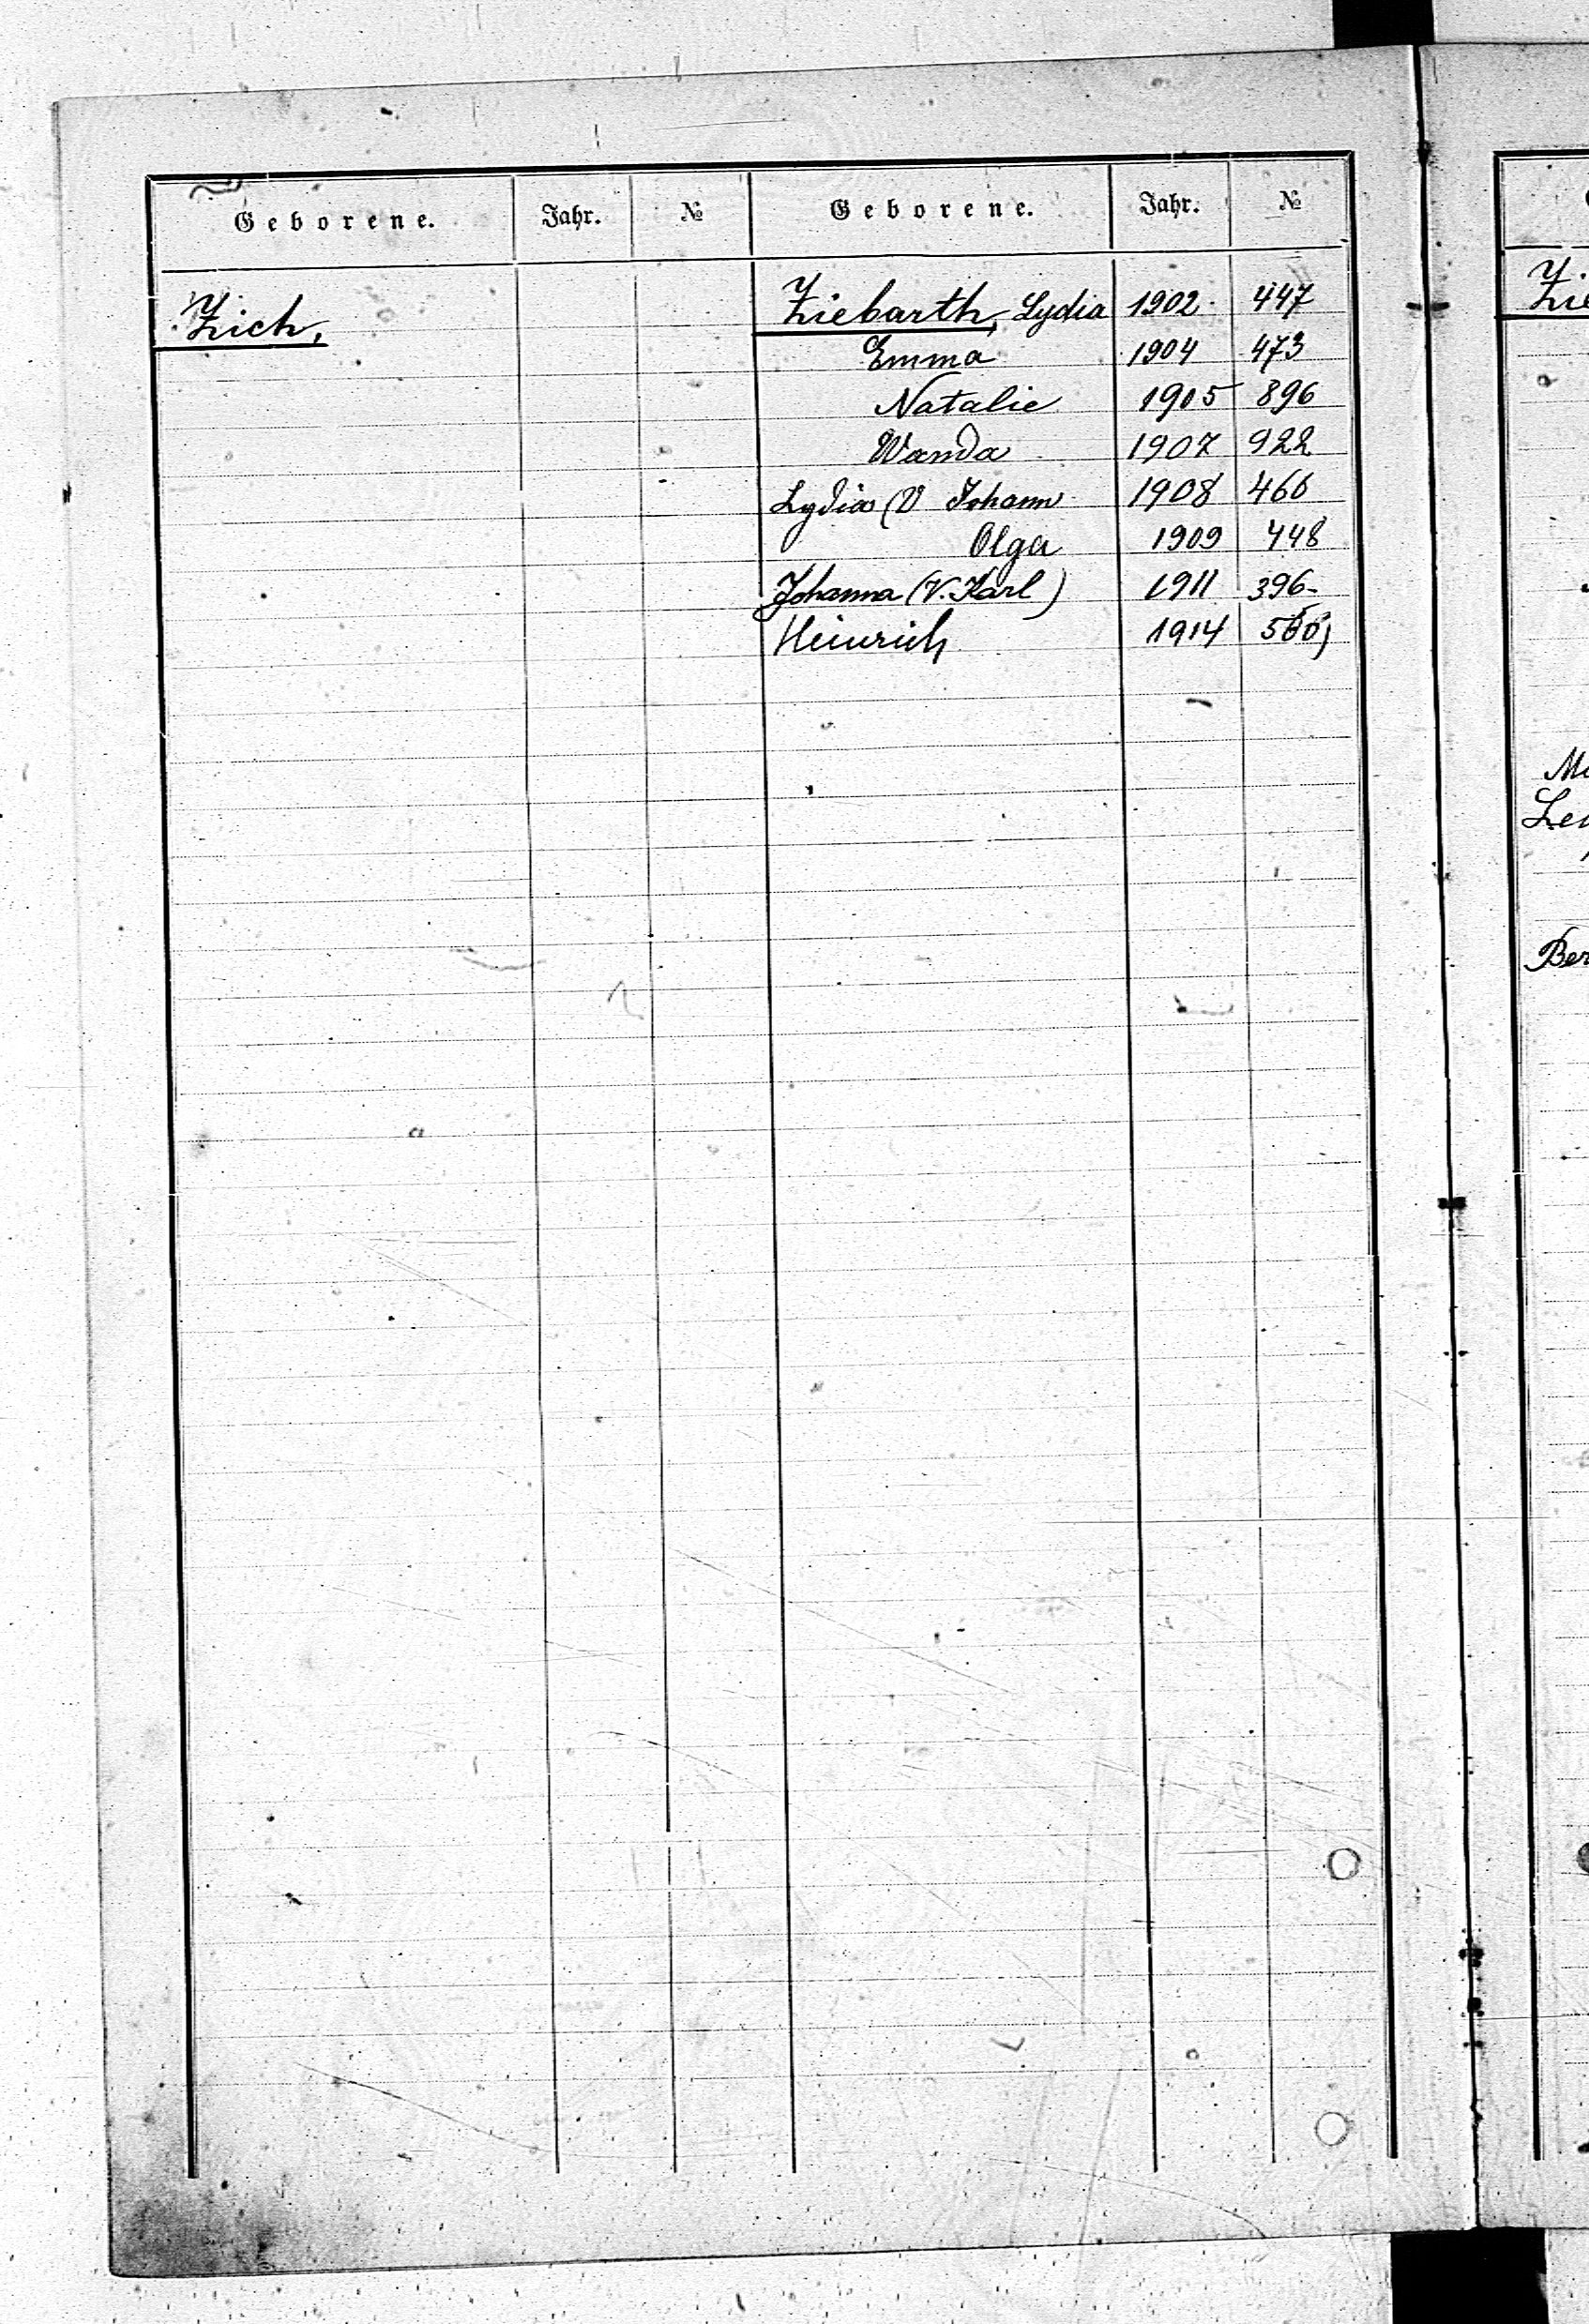 Geborene. Jahr. № Geborene. Jahr. №
Zich,
Ziebarth, Lydia 1902 447
Emma 1904 473
Natalie 1905 896
Wanda 1907 922
Lydia (V Johann 1908 460
Olga 1909 448
Johanna (V. Karl) 1911 396
Heinrich 1914
Zie
Le
Ber